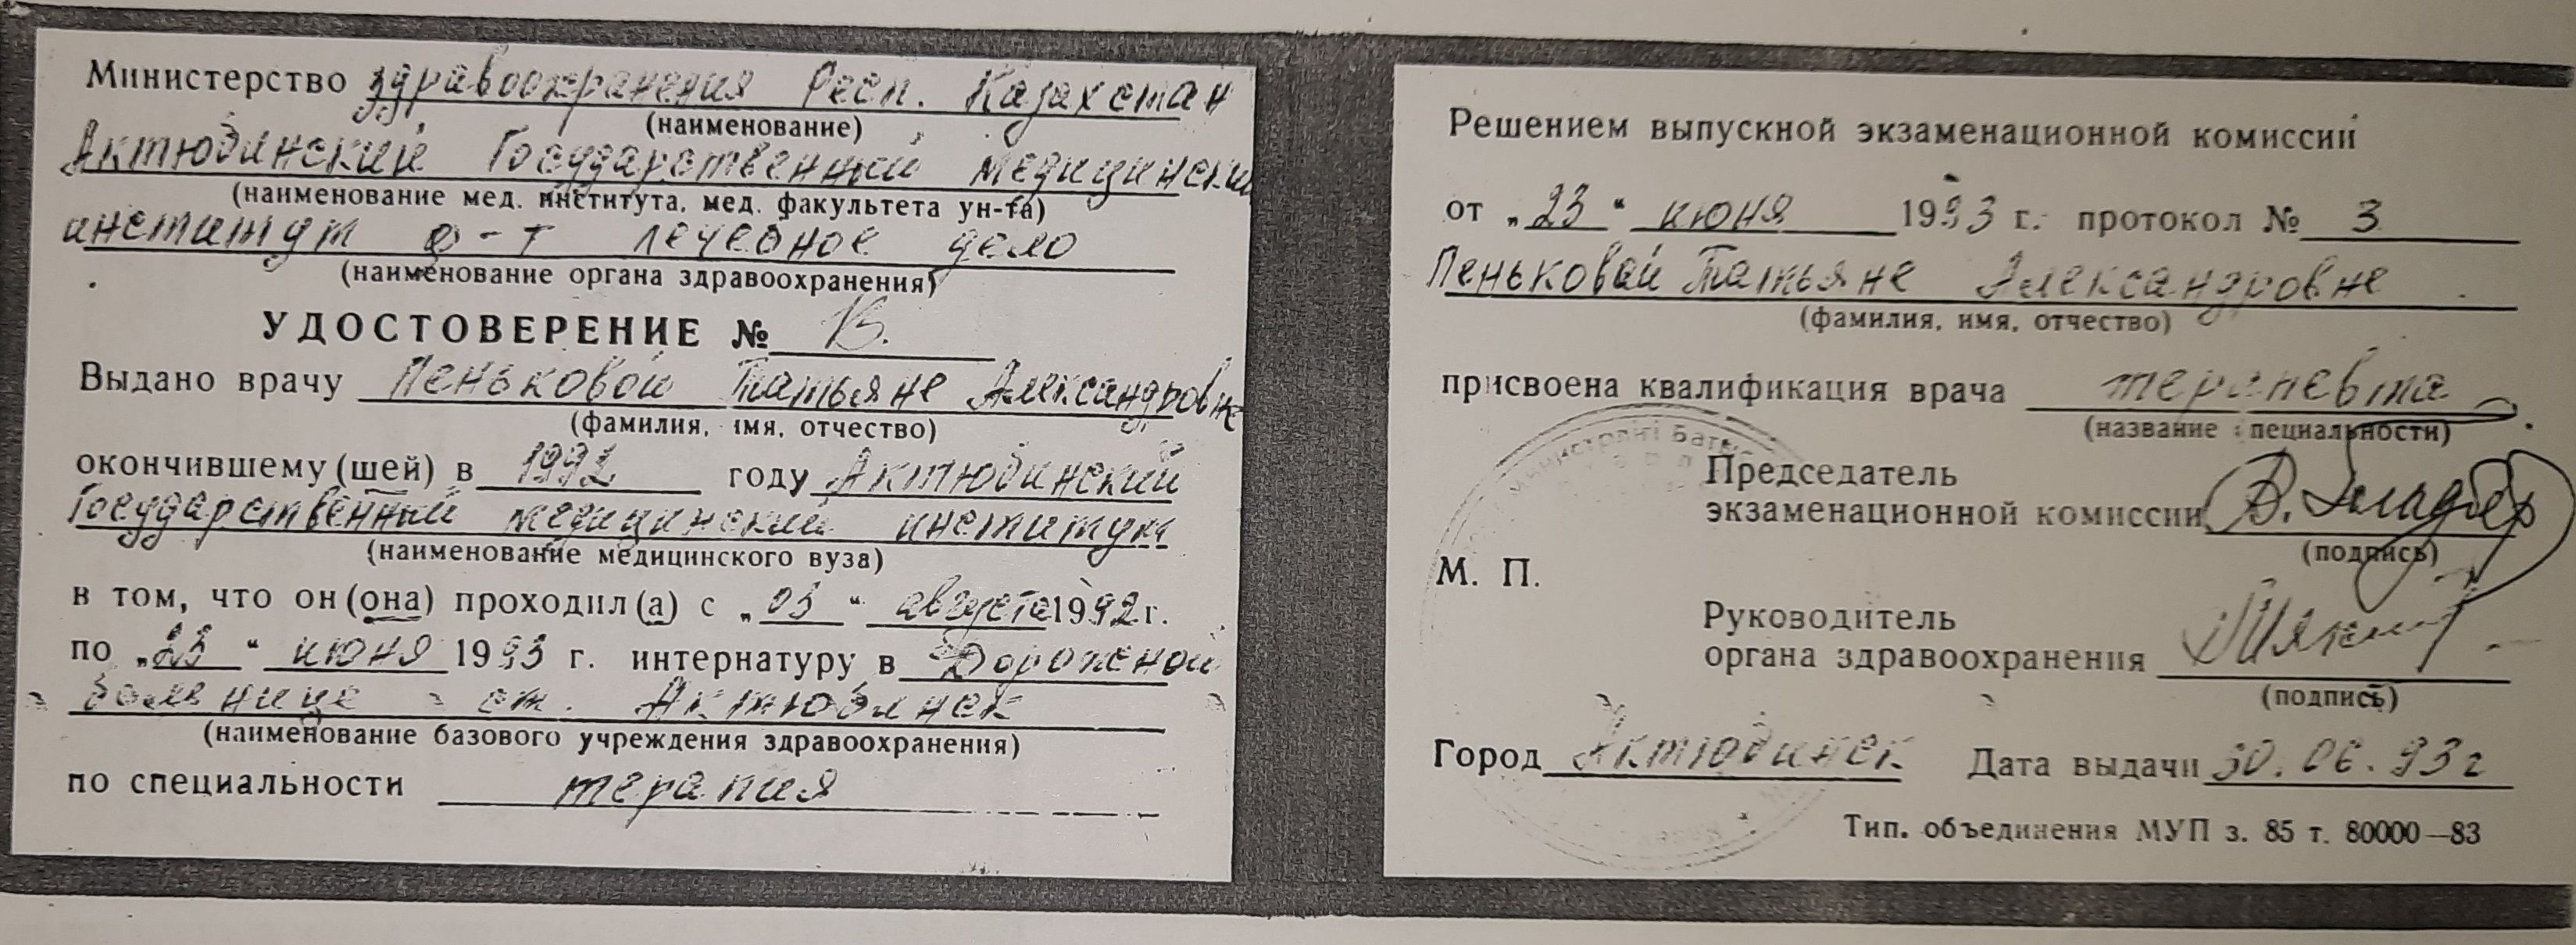 Министерство здравоохранения Респ. Казахстан
(наименование)
Актюбинский Государственный медицинский
(наименование мед. института, мед. факультета ун-та)
институт ф-т лечебное дело
(наименование органа здравоохранения)
УДОСТОВЕРЕНИЕ №
Выдано врачу Пеньковой Татьяне Александровне
(фамилия, имя, отчество)
окончившему (шей) в 1992 году Актюбинский
Государственный медицинский институт
(наименование медицинского вуза)
в том, что он (она) проходил (а) с „03“ августа 1992 г.
по „23“ июня 1993 г. интернатуру в Дорожной
больнице ст. Актюбинск
(наименование базового учреждения здравоохранения)
по специальности терапия
Решением выпускной экзаменационной комиссии
от „23“ июня 1993 г. протокол № 3
Пеньковой Татьяне Александровне
(фамилия, имя, отчество)
присвоена квалификация врача терапевта
(название специальности)
Председатель
экзаменационной комиссии
(подпись)
М. П.
Руководитель
органа здравоохранения
(подпись)
Город Актюбинск Дата выдачи 30.06.93г
Тип. объединения МУП з. 85 т. 80000—83